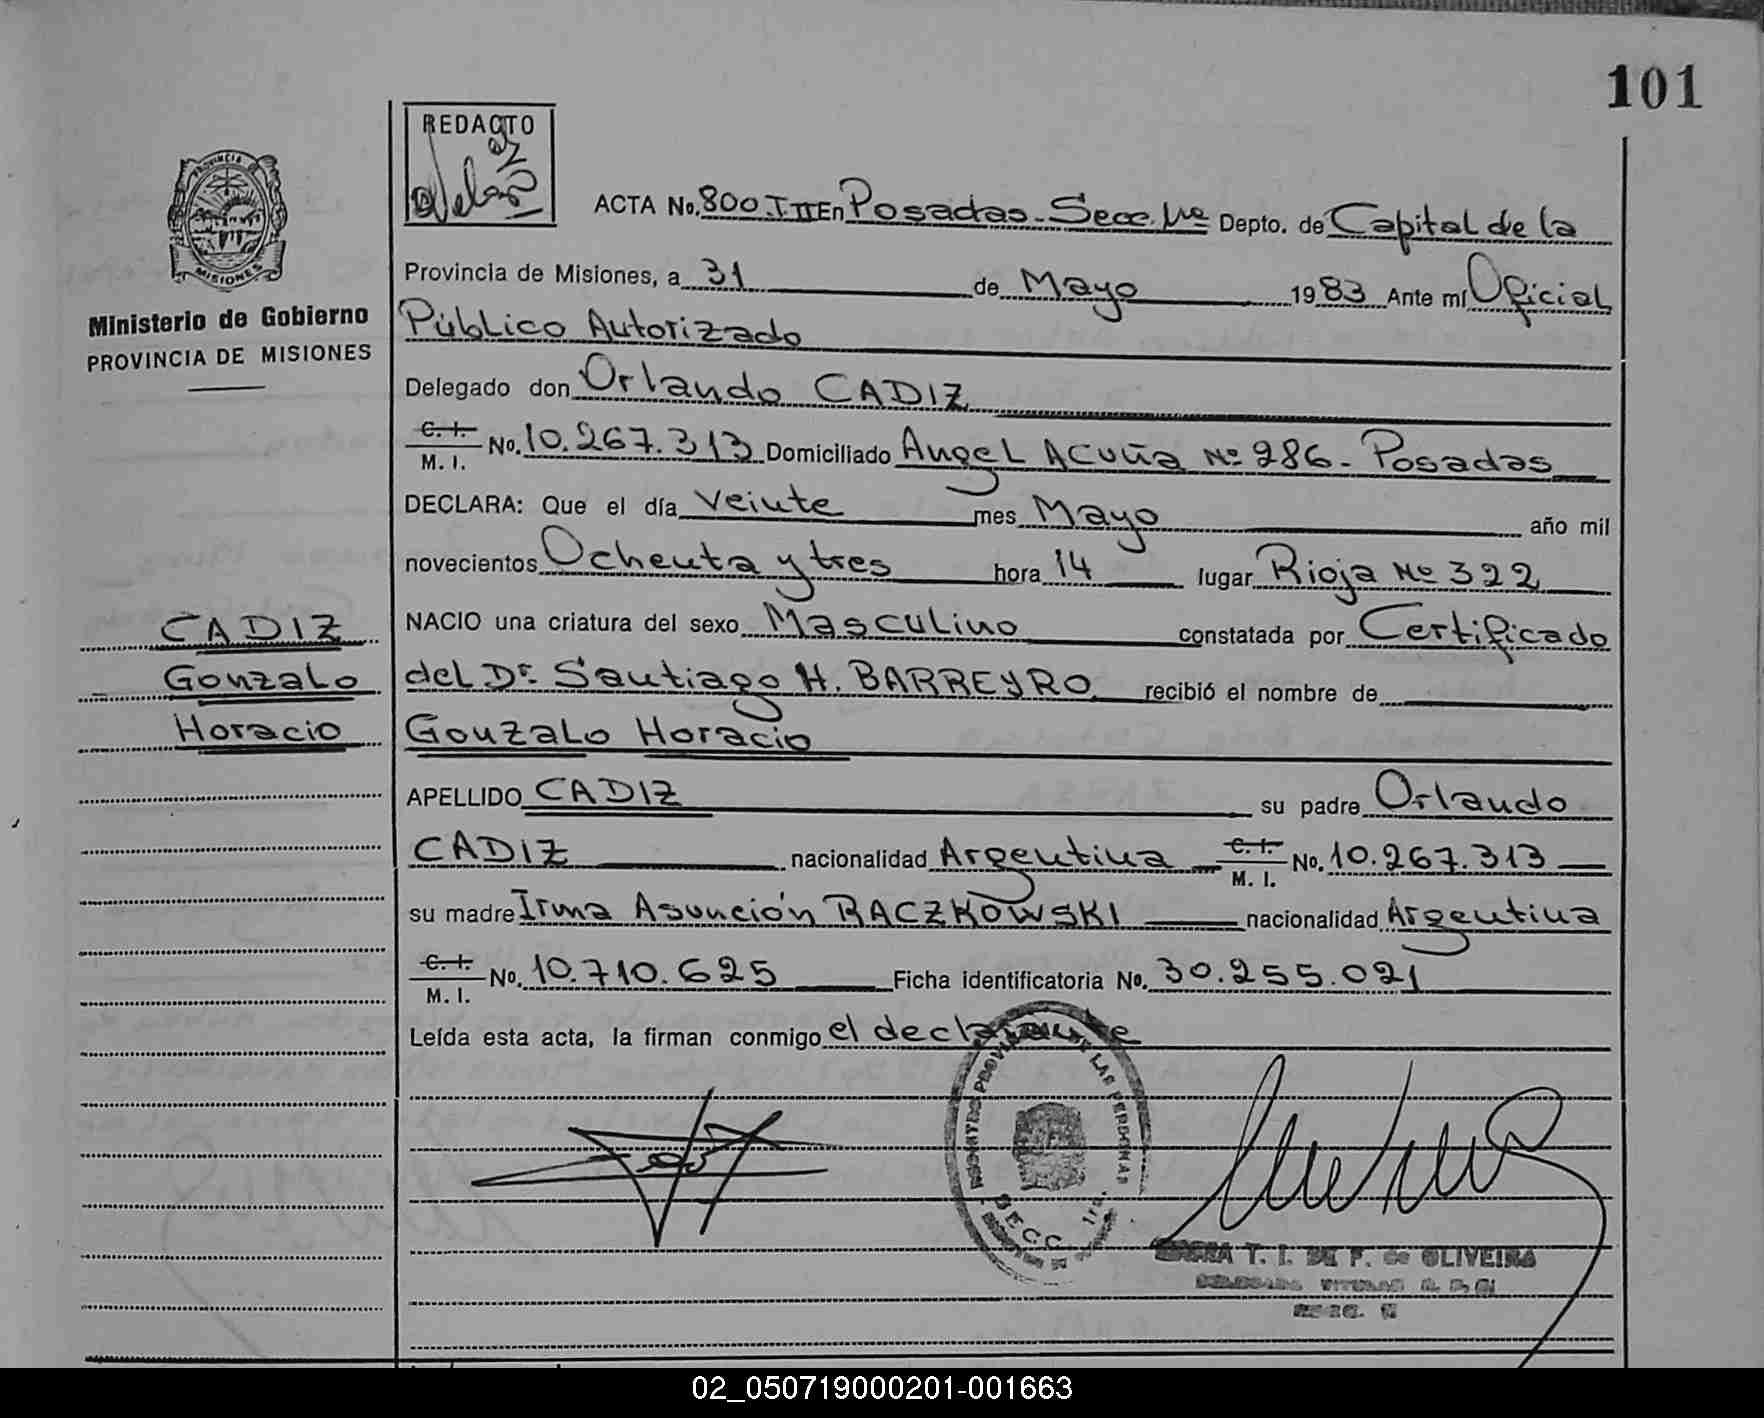 101
REDACTO
ACTA No. 800 T. III En Posadas - Secc. 1ra Depto. de Capital de la
PROVINCIA
MISIONES
Provincia de Misiones, a 31 de Mayo 1983 Ante mí Oficial
Ministerio de Gobierno
PROVINCIA DE MISIONES
Público Autorizado
Delegado don Orlando CADIZ
C. I. M. I. No. 10.267.313 Domiciliado Angel Acuña Nº 286 - Posadas
DECLARA: Que el día veinte mes Mayo año mil
novecientos Ochenta y tres hora 14 lugar Rioja Nº 322
CADIZ
Gonzalo
Horacio
NACIO una criatura del sexo Masculino constatada por Certificado
del Dr. Santiago H. BARREYRO recibió el nombre de
Gonzalo Horacio
APELLIDO CADIZ su padre Orlando
CADIZ nacionalidad Argentina C. I. M. I. No. 10.267.313
su madre Irma Asunción RACZKOWSKI nacionalidad Argentina
C. I. M. I. No. 10.710.625 Ficha identificatoria No. 30.255.021
Leída esta acta, la firman conmigo el declarante
DE LAS PERSONAS
SECC. 1ra.
T. I. DE F. de OLIVEIRA
02_050719000201-001663